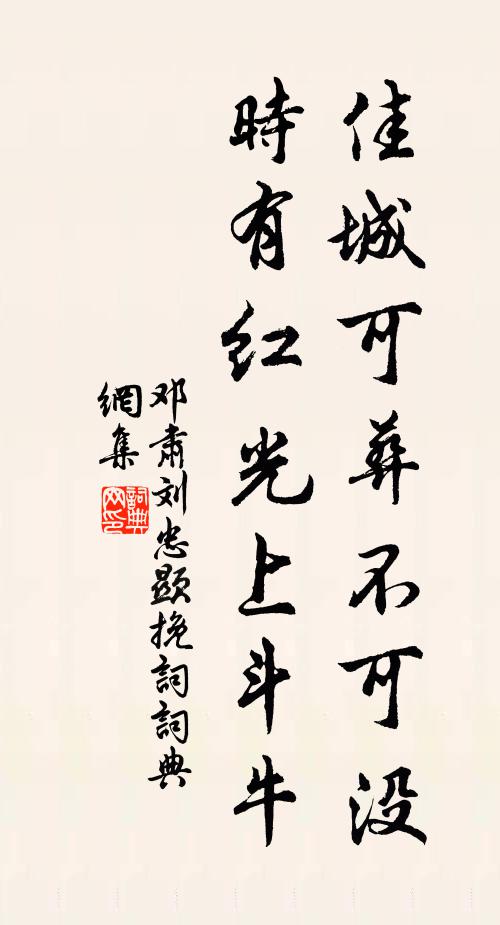 佳城可葬不可没
時有红光上斗牛
邓肃刘忠顯挽詞詞典
網集
詞典
网印